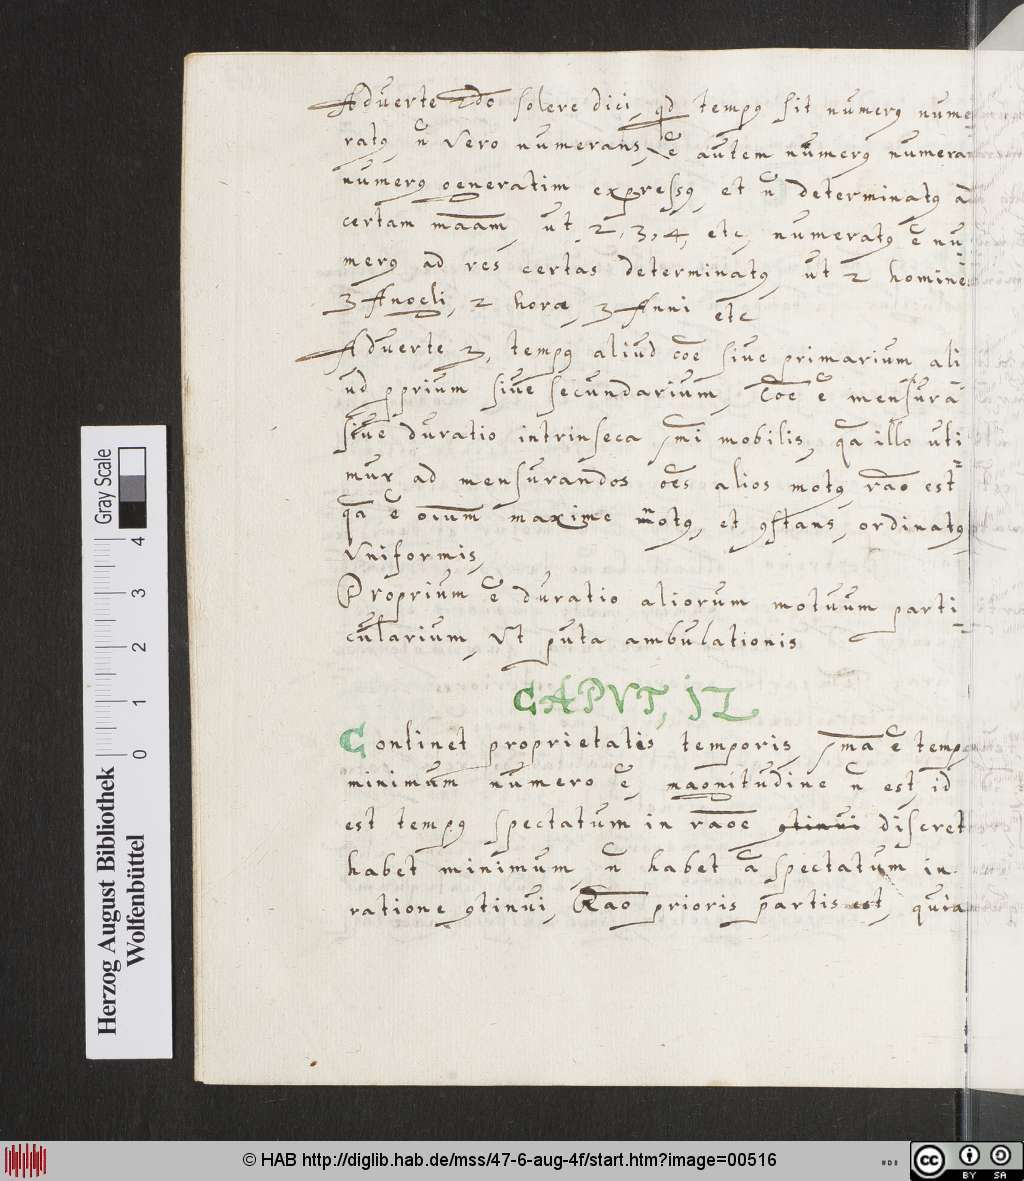 Aduerte 2do solere dici, qd tempꝯ sit numerꝯ nume
ratꝯ n̄ vero numerans, ē autem numerꝯ numera
numerꝯ generatim expressꝯ, et n̄ determinatꝯ a
certam māam, ut 2, 3, 4, etc, numeratꝯ ē nu-
merꝯ ad res certas determinatꝯ, ut 2 homine
3 Angeli, 2 horæ, 3 Anni etc
Aduerte 3, tempꝯ aliud cōe siue primarium ali
ud pprium siue secundarium, Cōe ē mensura
siue duratio intrinseca pmi mobilis, qa illo uti-
mur ad mensurandos oēs alios motꝯ rāo est
qa ē oium maxime motꝯ, et ꝯstans, ordinatꝯ,
Vniformis,
Proprium ē duratio aliorum motuum parti-
cularium, Vt puta ambulationis
CAPVT, II
Continet proprietates temporis, pma ē temp
minimum numero ē, magnitudine n̄ est, id
est tempꝯ spectatum in rāoe ꝯtinui discret
habet minimum, n̄ habet a spectatum in
ratione ꝯtinui, Rāo prioris partis est, quia
Gray Scale
0 1 2 3 4
Herzog August Bibliothek
Wolfenbüttel
© HAB http://diglib.hab.de/mss/47-6-aug-4f/start.htm?image=00516
cc BY SA